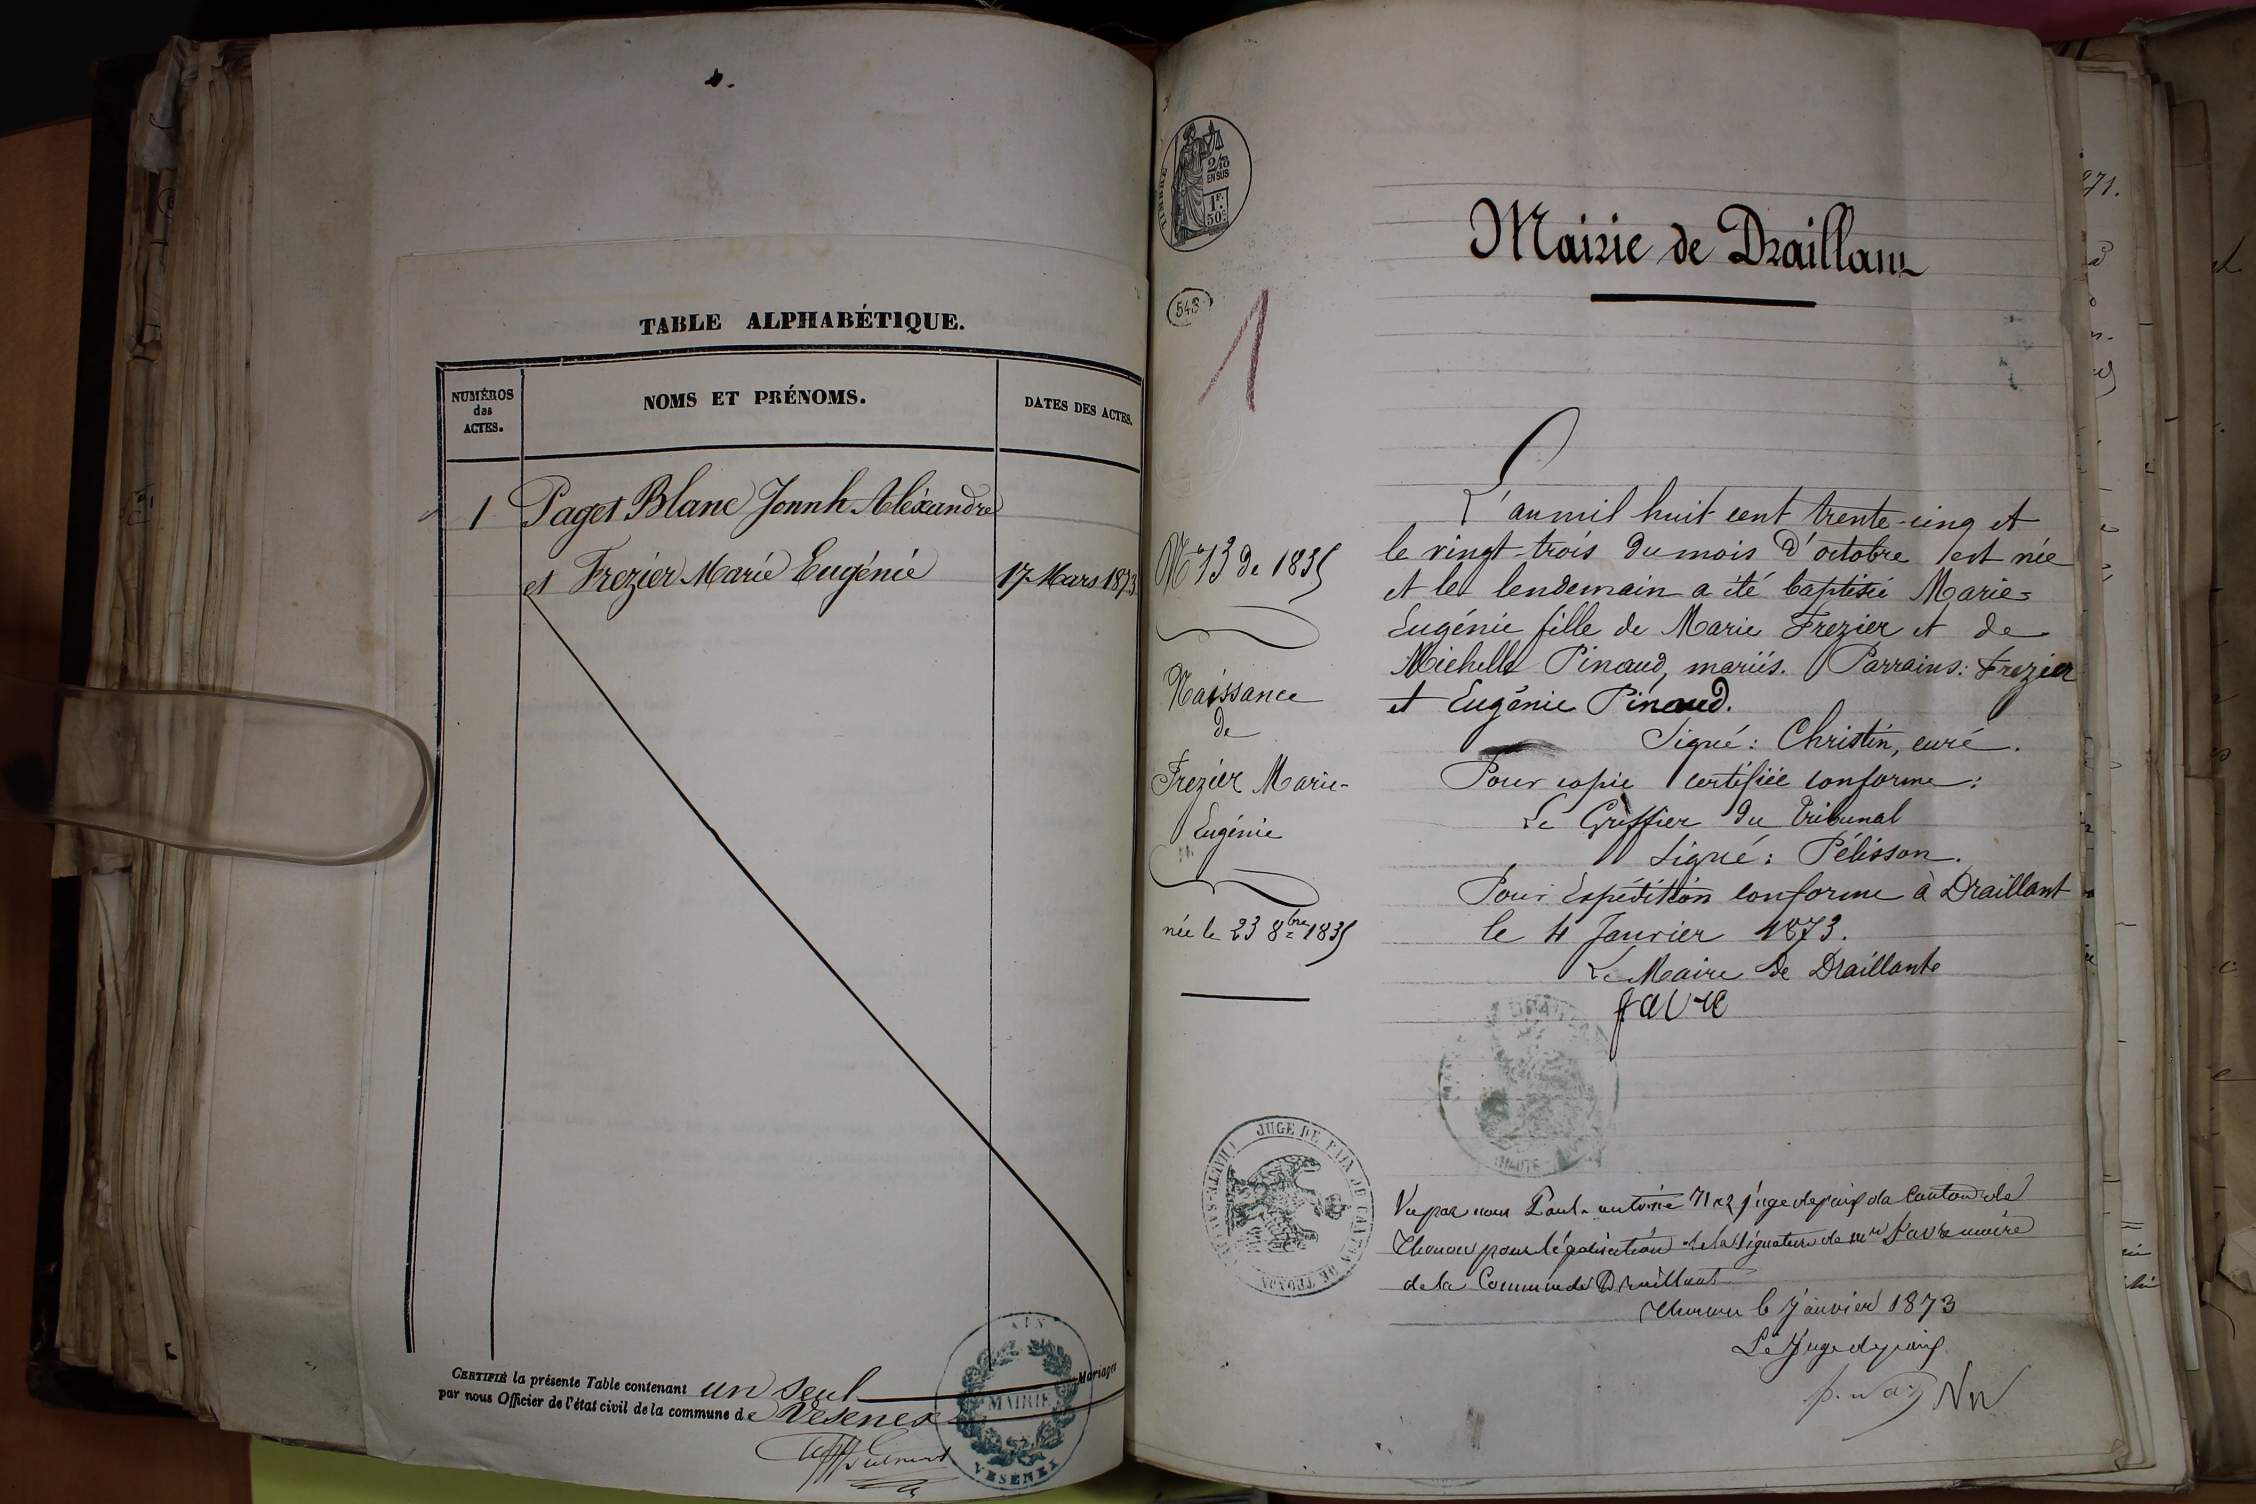 TABLE ALPHABÉTIQUE.
NUMÉROS
des
ACTES.
NOMS ET PRÉNOMS.
DATES DES ACTES.
1 Paget Blanc Jonnh Aléxandre
et Frezier Marie Eugénie 17 Mars 1873
CERTIFIÉ la présente Table contenant un seul Mariages
par nous Officier de l'état civil de la commune de Vesenex
AIN
MAIRIE
VESENEX
TIMBRE
2/10
EN SUS
1F.
50c.
543
1
Mairie de Draillant
No 13 de 1835
Naissance
de
Frezier Marie-
Eugénie
née le 23 8bre 1835
L'an mil huit cent trente-cinq et
le vingt-trois du mois d'octobre est née
et le lendemain a été baptisée Marie-
Eugénie fille de Marie Frezier et de
Michelle Pinaud, mariés. Parrains: Frezier
et Eugénie Pinaud.
Signé: Christin, curé.
Pour copie certifiée conforme:
Le Greffier du Tribunal
Signé: Pélisson.
Pour Expédition conforme à Draillant
le 4 Janvier 1873.
Le Maire de Draillant
favre
JUGE DE PAIX DU CANTON DE THONON
Vu par nous Paul-antoine juge de paix du Canton de
Thonon pour légalisation de la signature de Mr Favre maire
de la Commune de Draillant
Thonon 6 Janvier 1873
Le Juge de paix